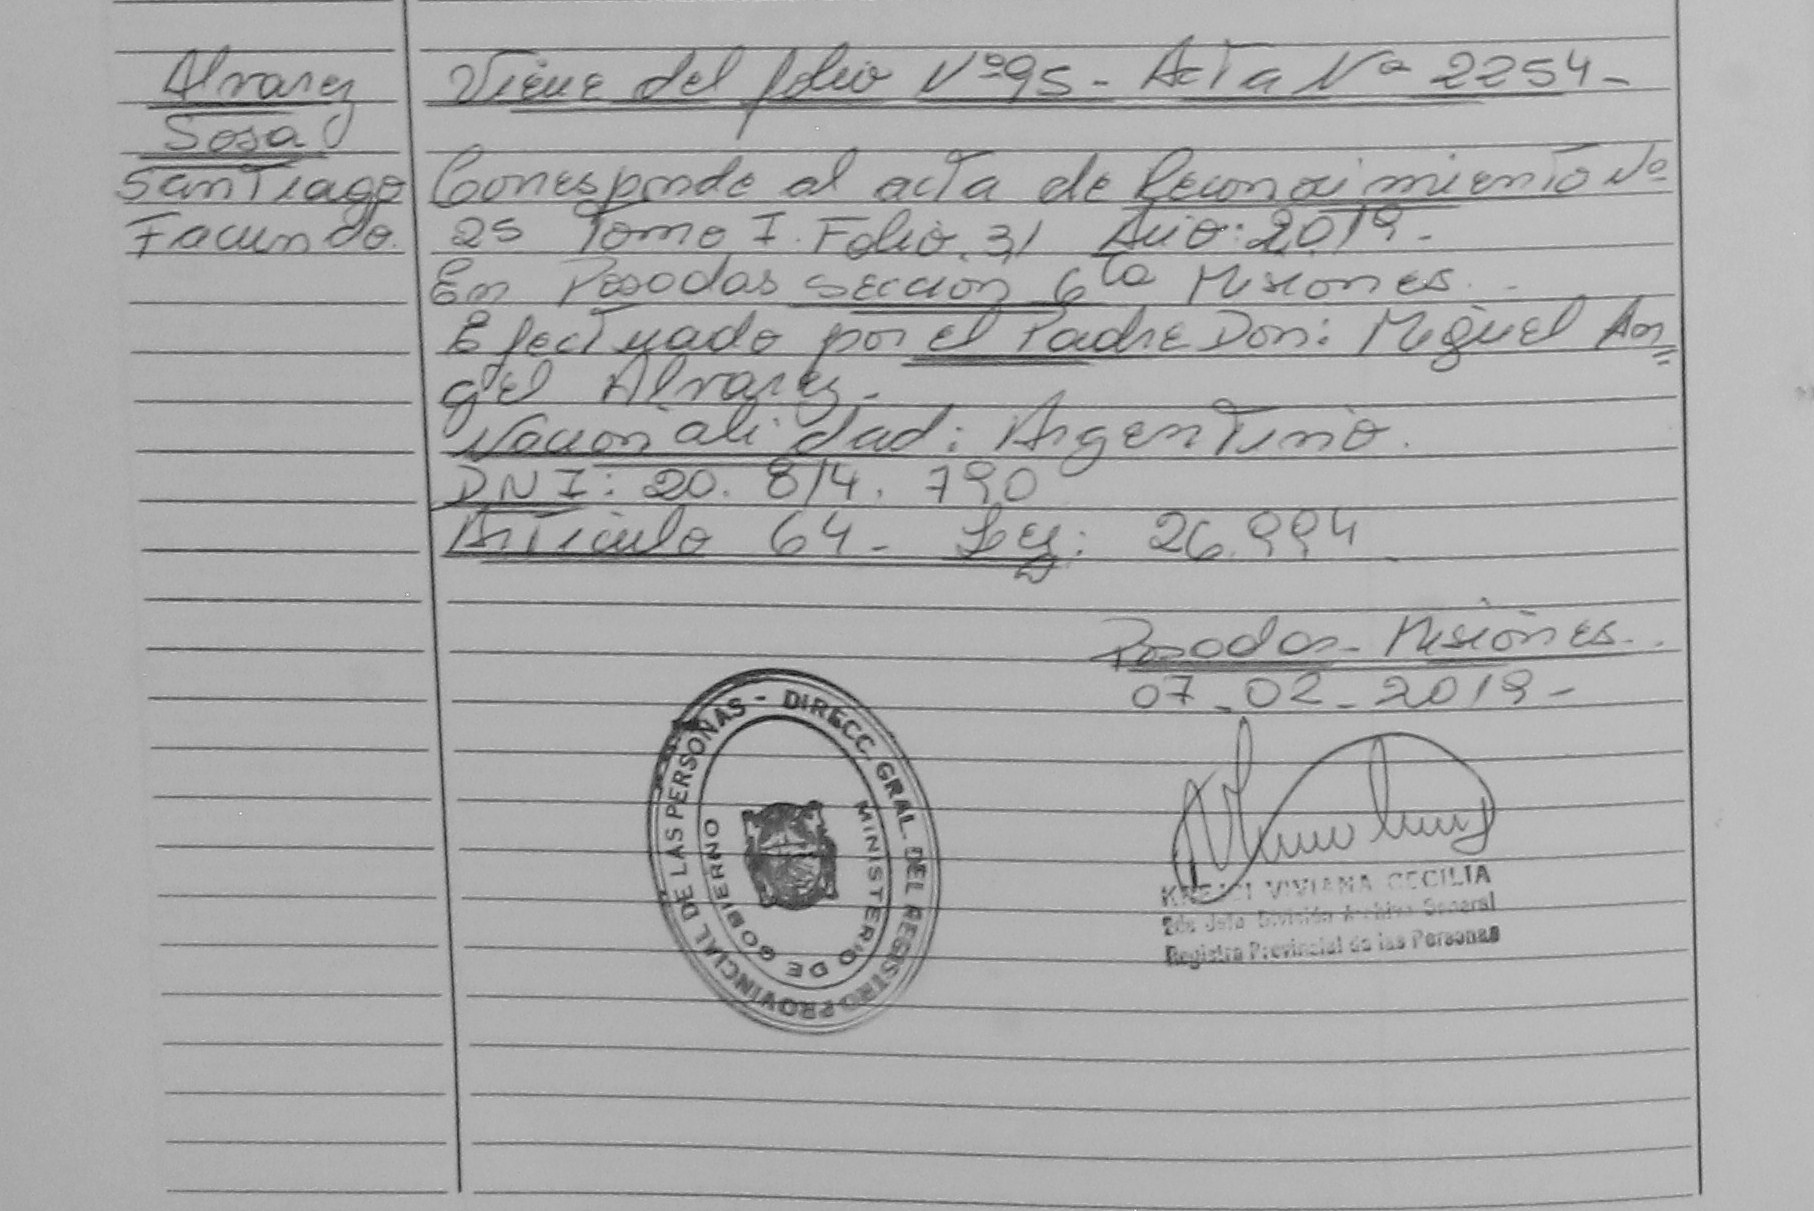 Alvarez
Sosa
Santiago
Facundo.
Viene del folio Nº 95 - Acta Nº 2254 -
Corresponde al acta de Reconocimiento Nº
25 Tomo I. Folio. 31 Año: 2019 -
En Posadas sección 6ta Misiones.
Efectuado por el Padre Don: Miguel An=
gel Alvarez -
Nacionalidad: Argentino.
DNI: 20. 814. 790
Artículo 64 - Ley: 26.994
Posadas - Misiones.
07-02-2019 -
DIRECC. GRAL. DEL REGISTRO PROVINCIAL DE LAS PERSONAS -
MINISTERIO DE GOBIERNO
VIVIANA CECILIA
2do Jefe División Archivo General
Registro Provincial de las Personas